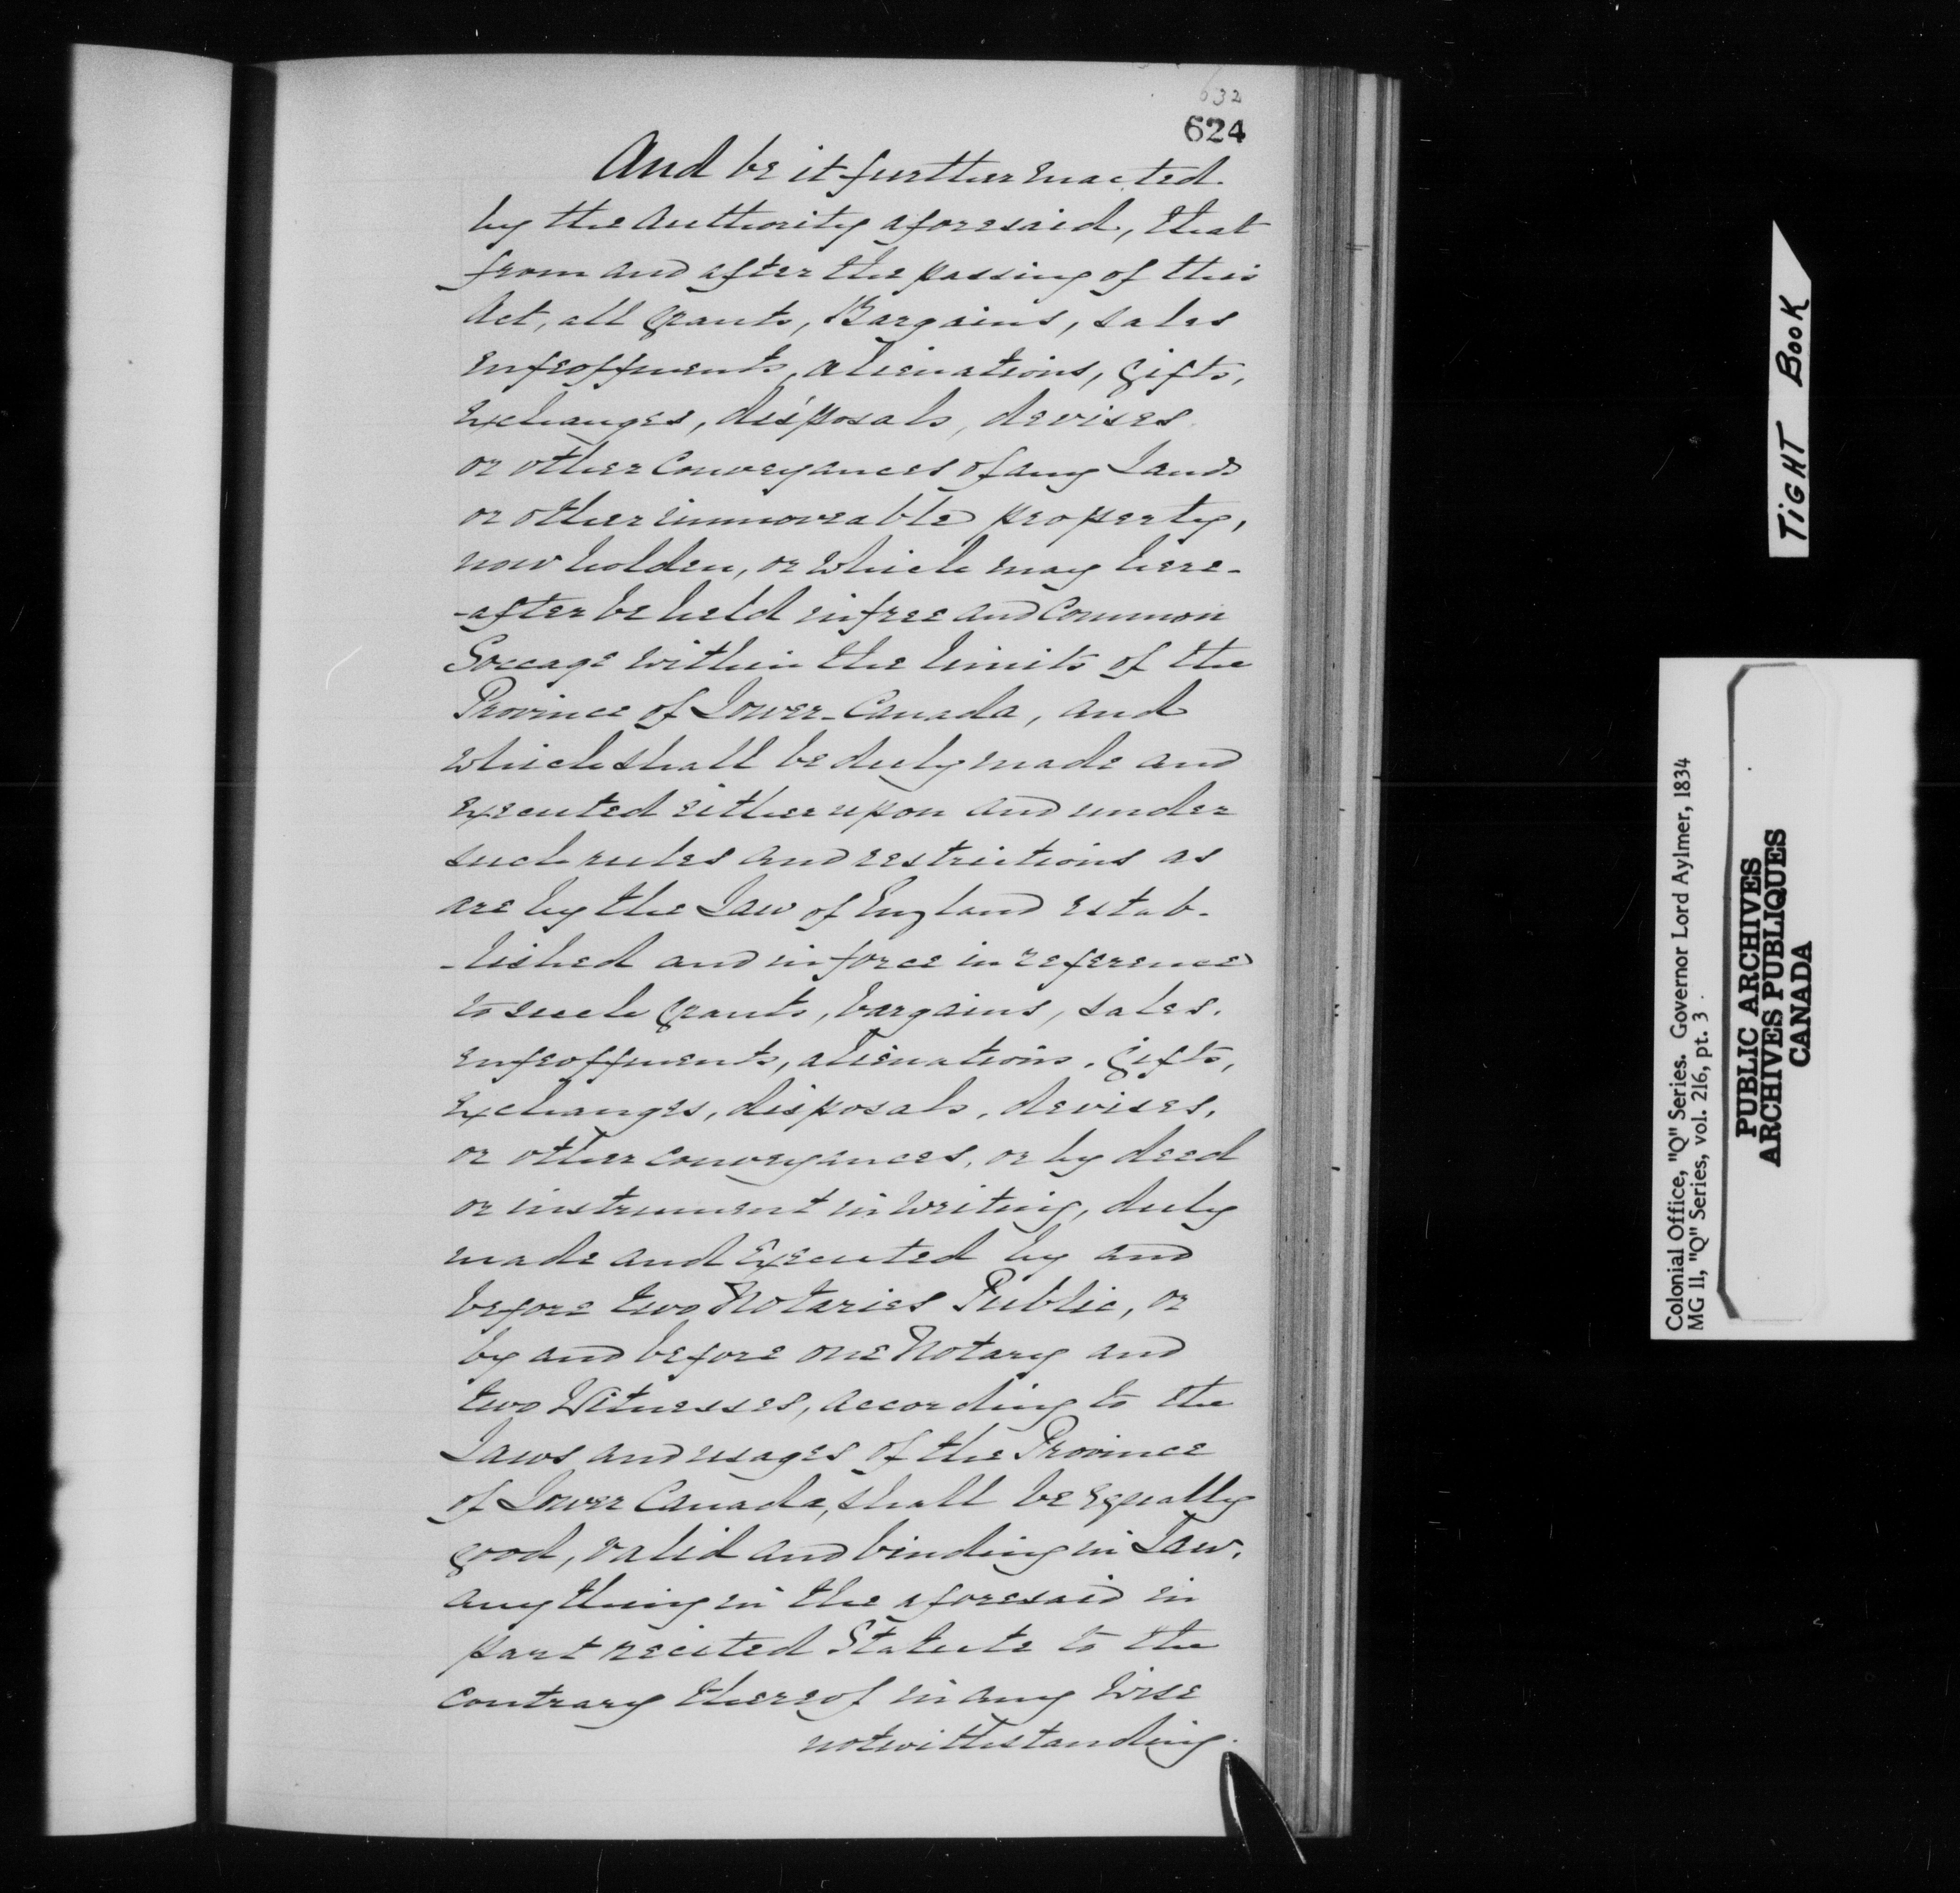 632
624
And be it further enacted.
by the authority aforesaid, that
from and after the passing of this
Act, all grants, Bargains, sales
enfeoffments, alienations, gifts,
exchanges, disposals, devises
or other conveyances of any Lands
or other immoveable property,
now holden, or which may here-
-after be held in free and common
Soccage within the limits of the
Province of Lower-Canada, and
which shall be duly made and
executed either upon and under
such rules and restrictions as
are by the Law of England estab-
-lished and in force in reference
to such grants, bargains, sales.
enfeoffments, alienations. gifts,
exchanges, disposals, devises,
or other conveyances, or by deed
or instrument in writing, duly
made and Executed by and
before two Notaries Public, or
by and before one Notary and
two Witnesses, according to the
Laws and usages of the Province
of Lower Canada, shall be equally
good, valid and binding in Law,
any thing in the aforesaid in
part recited Statute to the
contrary thereof in any wise
notwithstanding.
TIGHT BOOK
Colonial Office, "Q" Series. Governor Lord Aylmer, 1834
MG 11, "Q" Series, vol. 216, pt. 3.
PUBLIC ARCHIVES
ARCHIVES PUBLIQUES
CANADA